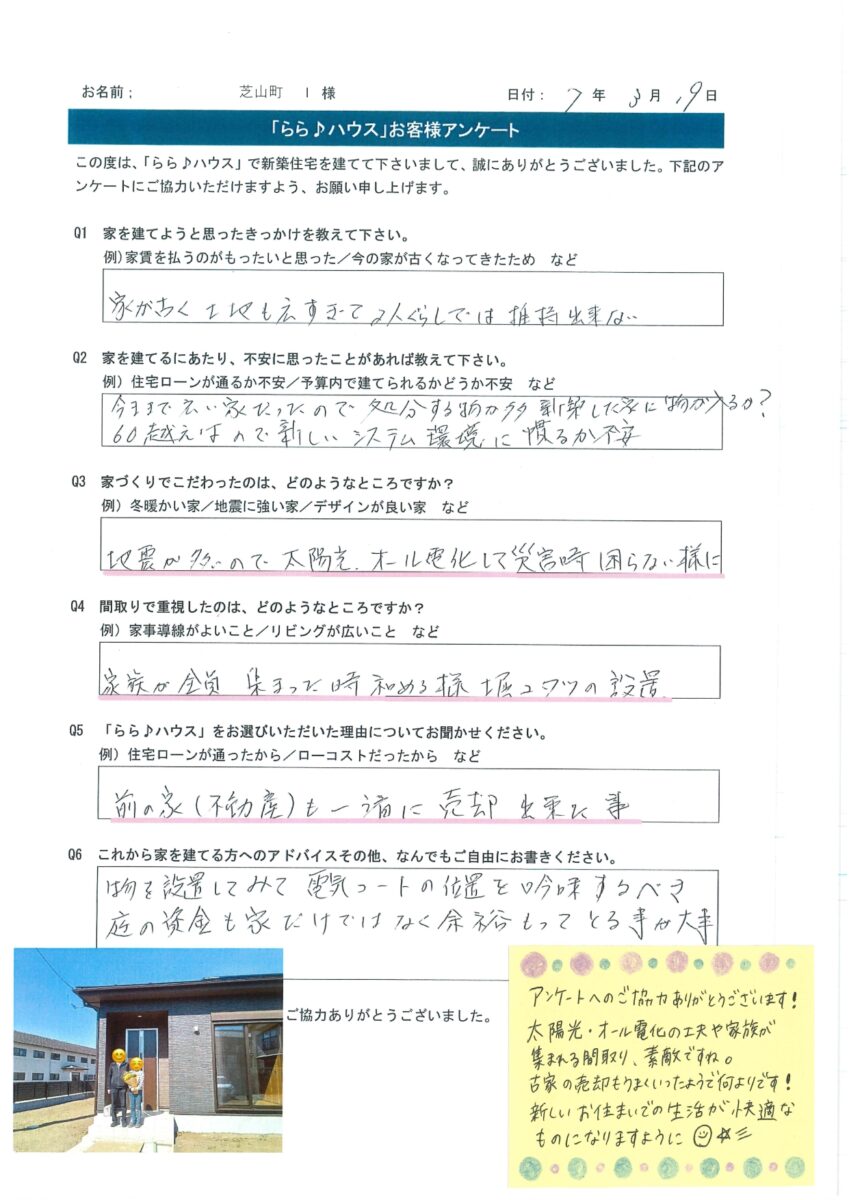 お名前； 芝山町 I 様 日付： 7 年 3 月 19 日
「らら♪ハウス」お客様アンケート
この度は、「らら♪ハウス」で新築住宅を建てて下さいまして、誠にありがとうございました。下記のア
ンケートにご協力いただけますよう、お願い申し上げます。
Q1 家を建てようと思ったきっかけを教えて下さい。
例）家賃を払うのがもったいと思った／今の家が古くなってきたため など
家が古く 土地も広すぎて 2人ぐらしでは 維持出来ない
Q2 家を建てるにあたり、不安に思ったことがあれば教えて下さい。
例）住宅ローンが通るか不安／予算内で建てられるかどうか不安 など
今まで広い家だったので 処分する物が多 新築した家に物が入るか？
60越えなので新しいシステム環境に慣るか不安
Q3 家づくりでこだわったのは、どのようなところですか？
例）冬暖かい家／地震に強い家／デザインが良い家 など
地震が多いので 太陽光、オール電化して災害時 困らない様に
Q4 間取りで重視したのは、どのようなところですか？
例）家事導線がよいこと／リビングが広いこと など
家族が全員 集まった時 和める様 堀コタツの設置
Q5 「らら♪ハウス」をお選びいただいた理由についてお聞かせください。
例）住宅ローンが通ったから／ローコストだったから など
前の家（不動産）も一緒に 売却 出来た 事
Q6 これから家を建てる方へのアドバイスその他、なんでもご自由にお書きください。
物を設置してみて 電気コートの位置を吟味するべき
庭の資金も家だけではなく余裕もってとる事が大事
ご協力ありがとうございました。
アンケートへのご協力ありがとうございます！
太陽光・オール電化の工夫や家族が
集まれる間取り、素敵ですね。
古家の売却もうまくいったようで何よりです！
新しいお住まいでの生活が快適な
ものになりますように